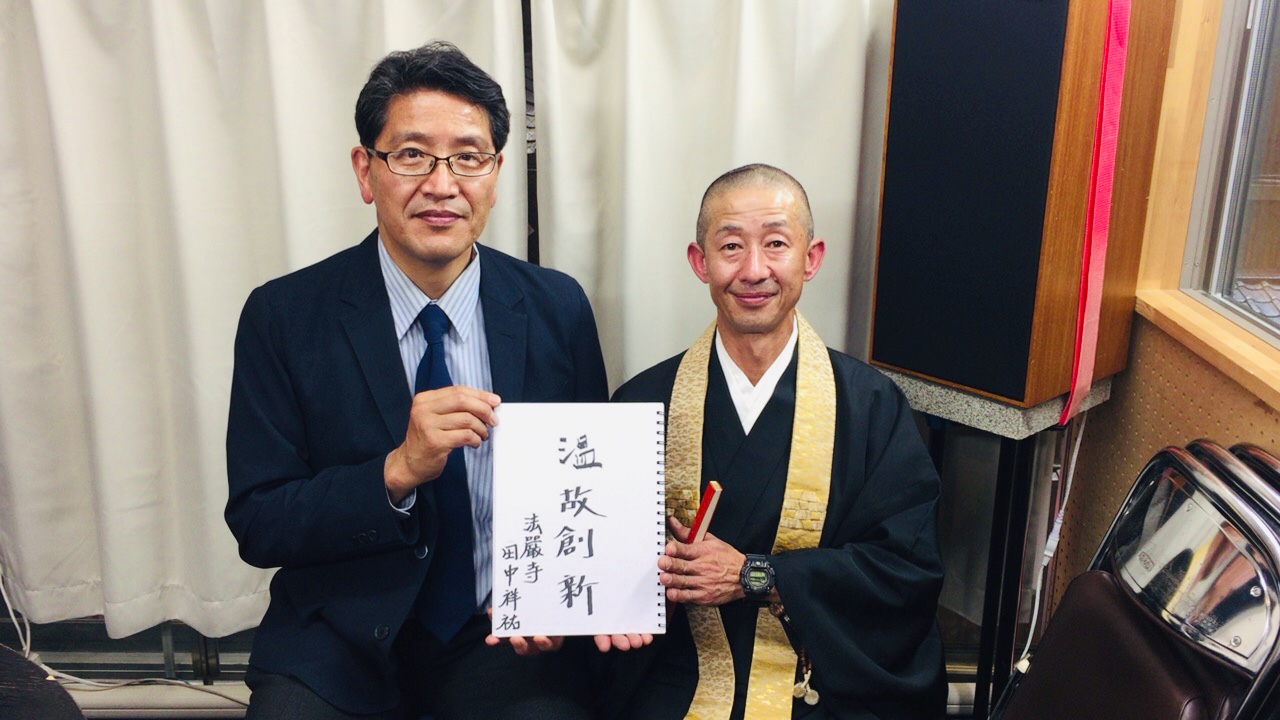 温故創新
法嚴寺
田中祥祐